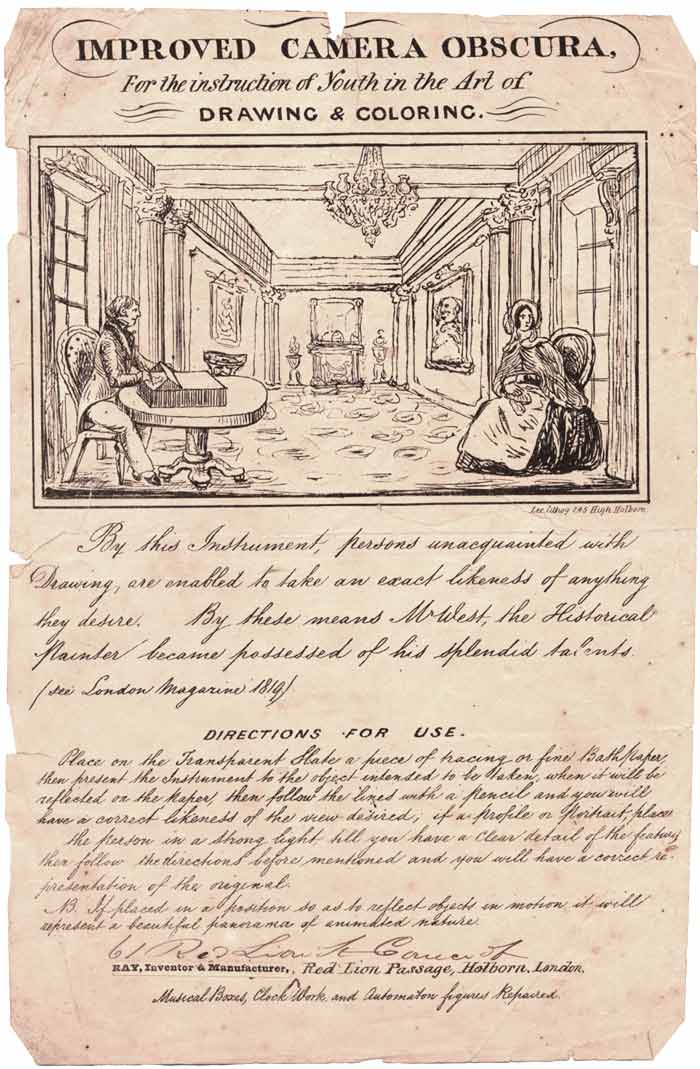 IMPROVED CAMERA OBSCURA,
For the instruction of Youth in the Art of
DRAWING & COLORING.
Lee, Lithog 245 High Holborn
By this Instrument, persons unacquainted with
Drawing, are enabled to take an exact likeness of anything
they desire. By these means Mr West, the Historical
Painter became possessed of his splendid talents.
(see London Magazine 1819)
DIRECTIONS FOR USE.
Place on the Transparent Slate a piece of tracing or fine Bath Paper,
then present the Instrument to the object intended to be taken, when it will be
reflected on the Paper, then follow the lines with a Pencil and you will
have a correct likeness of the view desired; if a Profile or Portrait, place
the person in a strong light till you have a clear detail of the features
then follow the directions before mentioned and you will have a correct re-
presentation of the original.
NB. If placed in a position so as to reflect objects in motion it will
represent a beautiful panorama of animated nature.
61 Red Lion St
RAY, Inventor & Manufacturer, Red Lion Passage, Holborn, London.
Musical Boxes, Clock Work and Automaton figures Repaired.